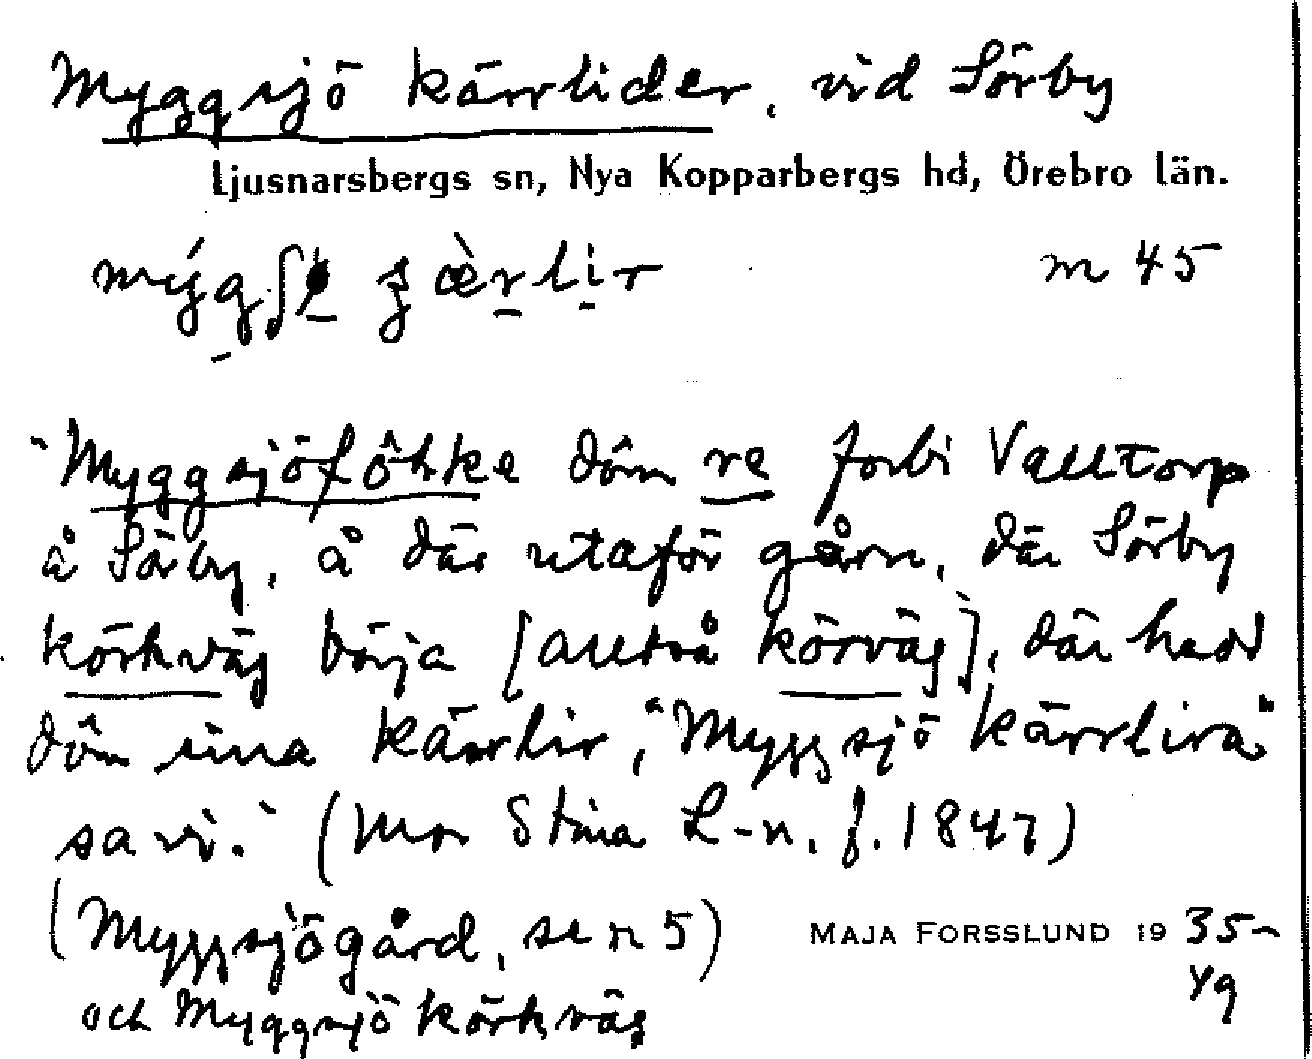 Myggsjö kärrlider, vid Sörby
Ljusnarsbergs sn, Nya Kopparbergs hd, Örebro län.
m 45
"Myggsjöfôhke dôm re forbi Valltorp
å Sörby, å där utaför gårn, där Sörby
körkväg börja [alltså körväg], där hadd
dôm sina kärrlir, "Myggsjö kärrlira"
sa vi." (Mor Stina L-n, f. 1847)
(Myggsjögård, se n 5)
MAJA FORSSLUND 19 35-
49
och Myggsjö körkväg